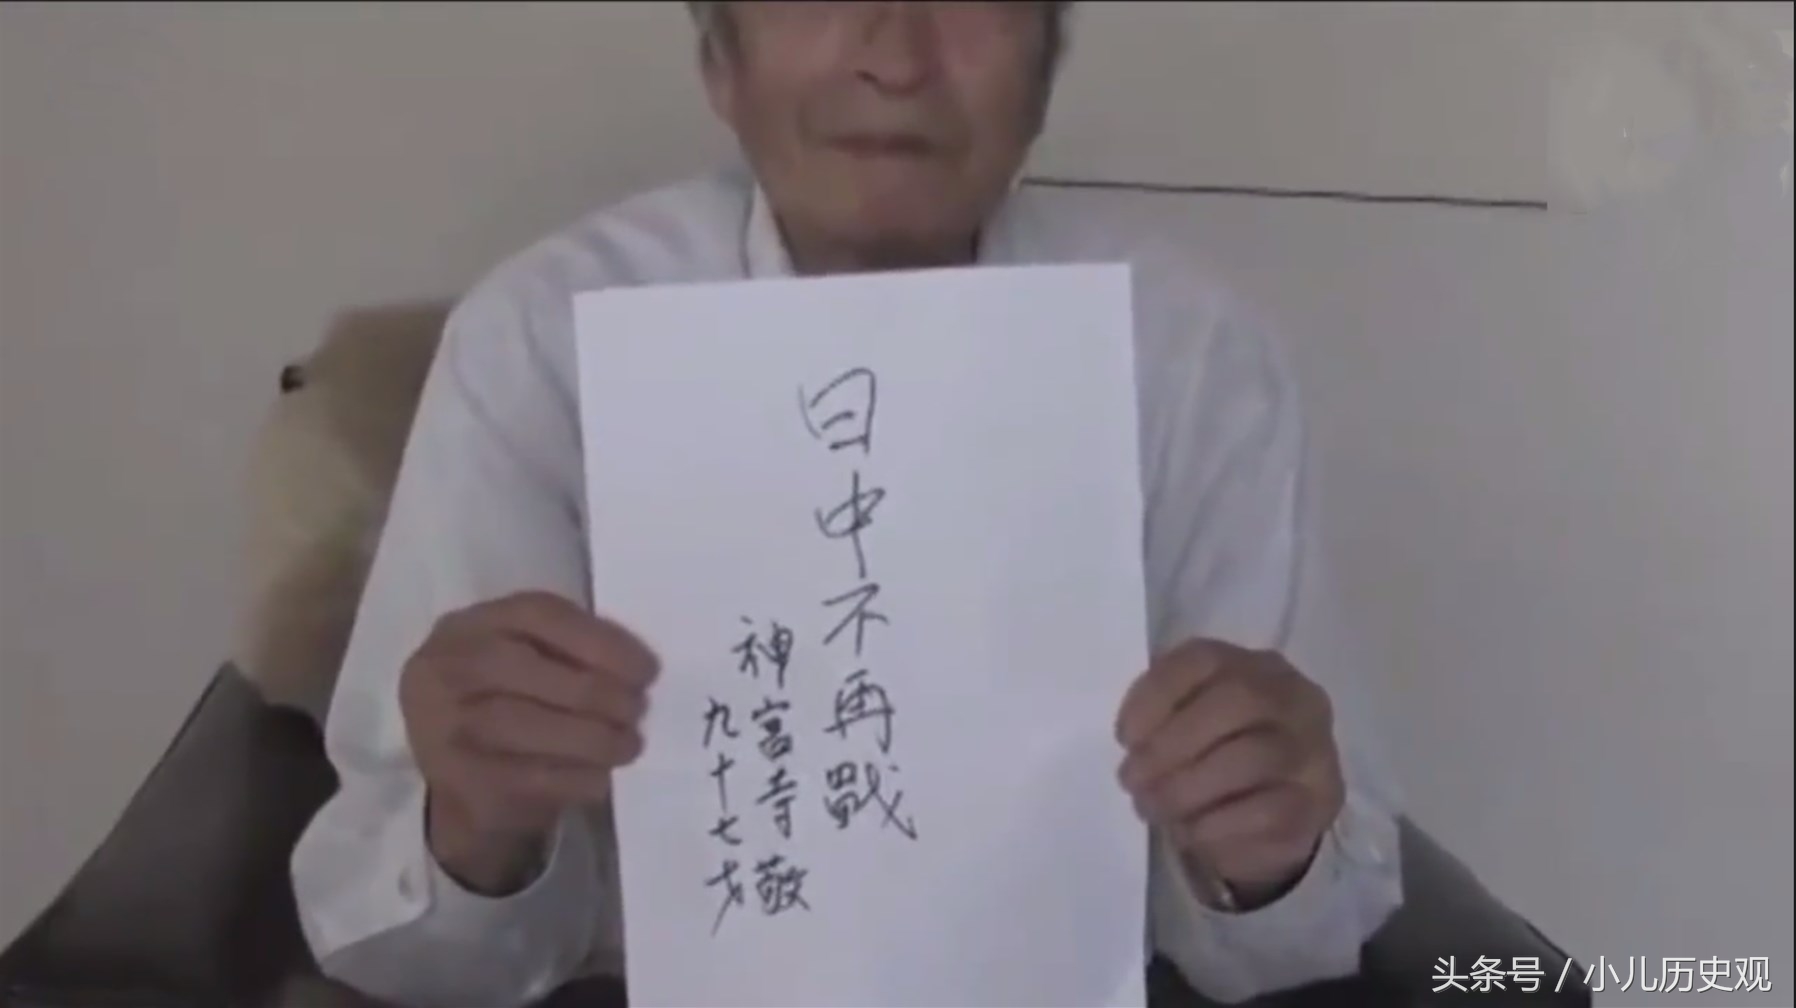 日中不再戰
神宮寺敬
九十七才
头条号 / 小儿历史观